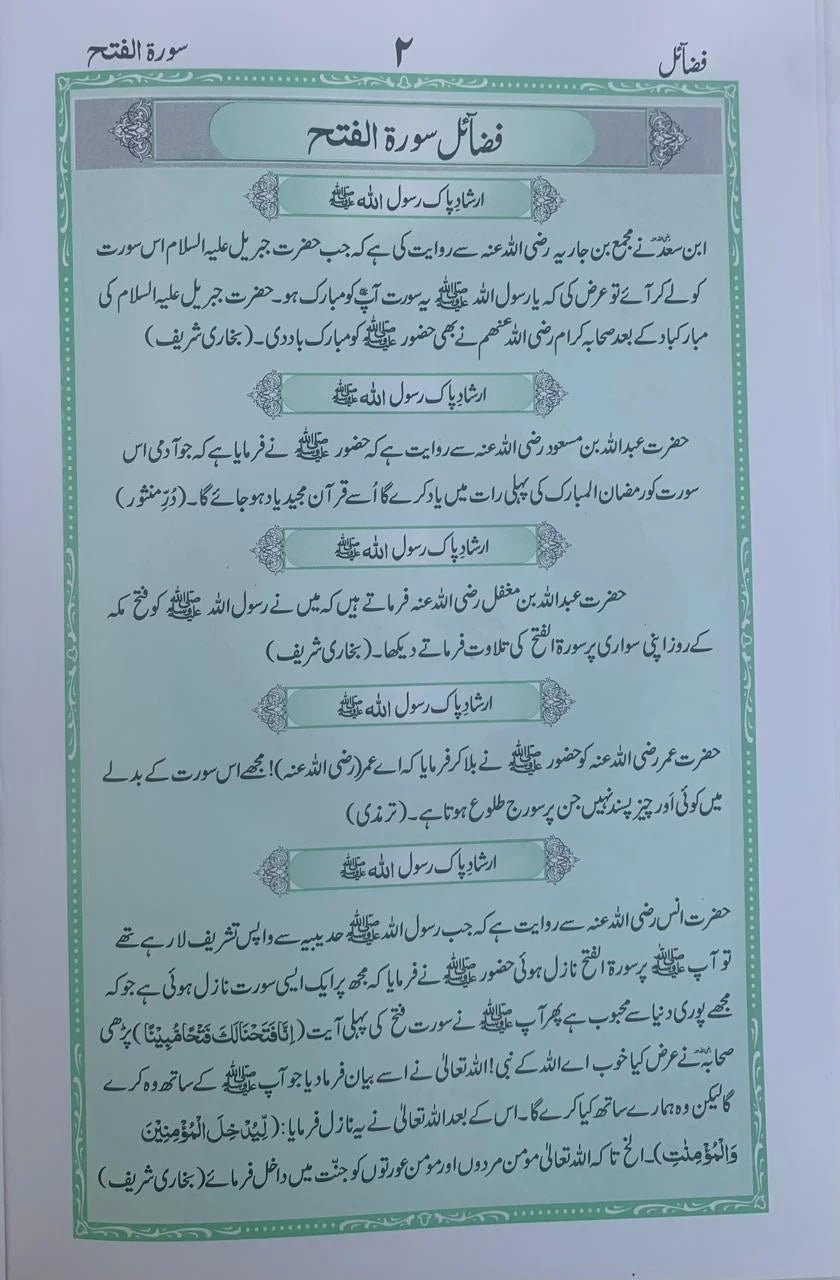 فضائل ۲ سورۃ الفتح
فضآئل سورۃ الفتح
ارشادِ پاک رسول اللہ ﷺ
ابن سعدؓ نے مجمع بن جاریہ رضی اللہ عنہ سے روایت کی ہے کہ جب حضرت جبریل علیہ السلام اس سورت
کو لے کر آئے تو عرض کی کہ یا رسول اللہ ﷺ یہ سورت آپؐ کو مبارک ہو۔ حضرت جبریل علیہ السلام کی
مبارکباد کے بعد صحابہ کرام رضی اللہ عنھم نے بھی حضور ﷺ کو مبارک باد دی۔ (بخاری شریف)
ارشادِ پاک رسول اللہ ﷺ
حضرت عبداللہ بن مسعود رضی اللہ عنہ سے روایت ہے کہ حضور ﷺ نے فرمایا ہے کہ جو آدمی اس
سورت کو رمضان المبارک کی پہلی رات میں یاد کرے گا اُسے قرآن مجید یاد ہو جائے گا۔ (دُرِّ منثور)
ارشادِ پاک رسول اللہ ﷺ
حضرت عبداللہ بن مغفل رضی اللہ عنہ فرماتے ہیں کہ میں نے رسول اللہ ﷺ کو فتح مکہ
کے روز اپنی سواری پر سورۃ الفتح کی تلاوت فرماتے دیکھا۔ (بخاری شریف)
ارشادِ پاک رسول اللہ ﷺ
حضرت عمر رضی اللہ عنہ کو حضور ﷺ نے بلا کر فرمایا کہ اے عمر (رضی اللہ عنہ)! مجھے اس سورت کے بدلے
میں کوئی اَور چیز پسند نہیں جن پر سورج طلوع ہوتا ہے۔ (ترمذی)
ارشادِ پاک رسول اللہ ﷺ
حضرت انس رضی اللہ عنہ سے روایت ہے کہ جب رسول اللہ ﷺ حدیبیہ سے واپس تشریف لا رہے تھے
تو آپ ﷺ پر سورۃ الفتح نازل ہوئی حضور ﷺ نے فرمایا کہ مجھ پر ایک ایسی سورت نازل ہوئی ہے جو کہ
مجھے پوری دنیا سے محبوب ہے پھر آپ ﷺ نے سورت فتح کی پہلی آیت (اِنَّا فَتَحْنَا لَكَ فَتْحًا مُّبِيْنًا) پڑھی
صحابہؓ نے عرض کیا خوب اے اللہ کے نبی! اللہ تعالیٰ نے اسے بیان فرما دیا جو آپ ﷺ کے ساتھ وہ کرے
گا لیکن وہ ہمارے ساتھ کیا کرے گا۔ اس کے بعد اللہ تعالیٰ نے یہ نازل فرمایا: (لِّيُدْخِلَ الْمُؤْمِنِيْنَ
وَالْمُؤْمِنٰتِ)۔ الخ تاکہ اللہ تعالیٰ مومن مردوں اور مومن عورتوں کو جنّت میں داخل فرمائے (بخاری شریف)